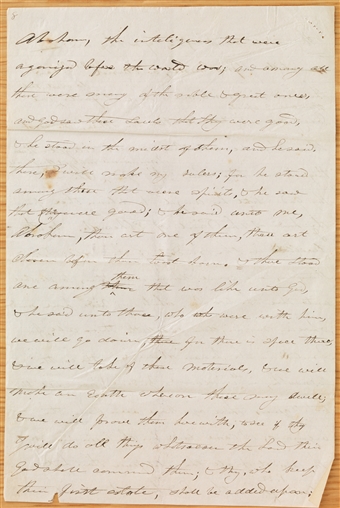 8
Abraham, the intelligences that were
organized before the world was; and among all
these were many of the noble & great ones,
and God saw these souls that they were good,
& he stood in the midst of them, and he said,
these, I will make my rulers; for he stood
among those that were spirits, & he saw
that they were good; & he said unto me,
Abraham, thou art one of them, thou art
chosen before thou wast born. & there stood
one among them that was like unto God,
& he said unto those, who were with him,
we will go down, for there is space there,
& we will take of these materials, & we will
make an earth whereon these may dwell;
& we will prove them herewith, to see if they
will do all things whatsoever the Lord their
God shall command them; & they, who keep
their first estate, shall be added upon;